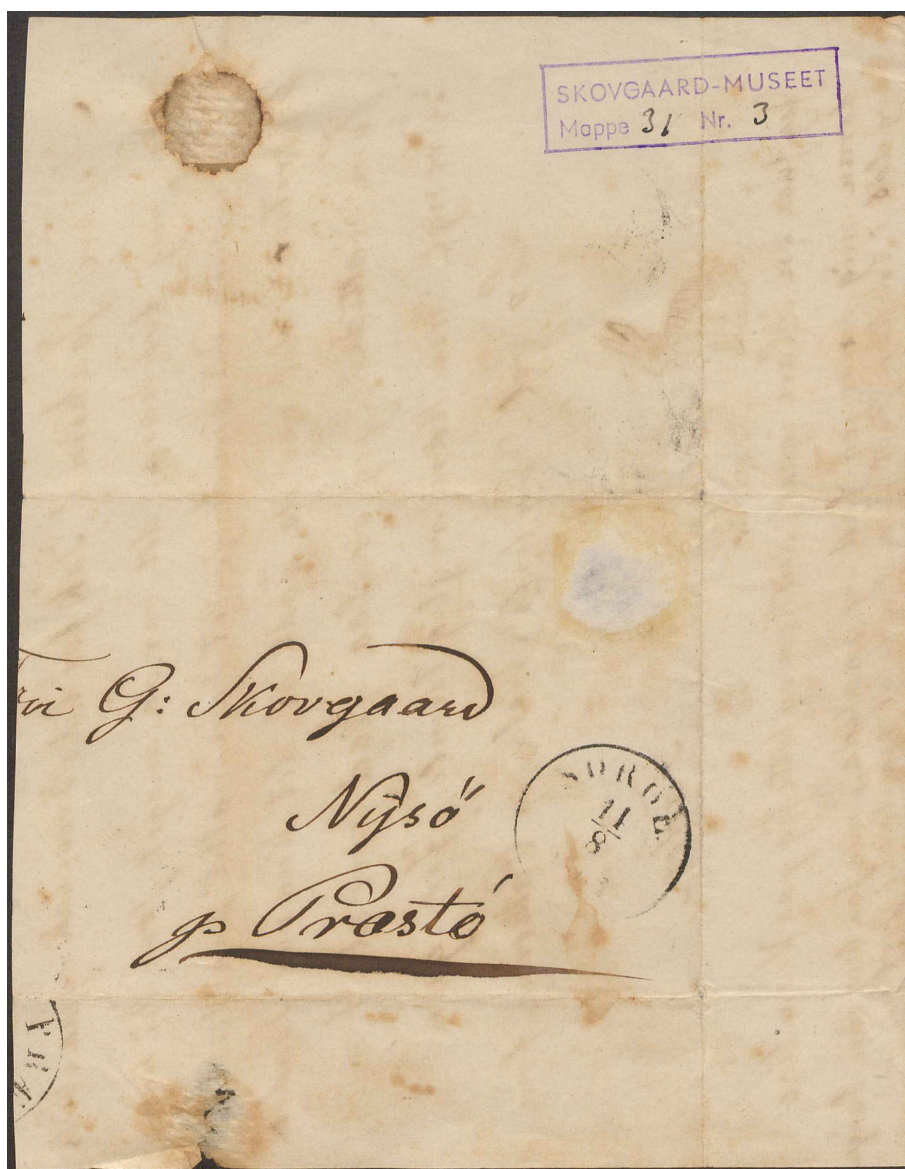 SKOVGAARD-MUSEET
Mappe 31 Nr. 3
G: Skovgaard
Nÿsó
p Præstó
SOROE
11
8